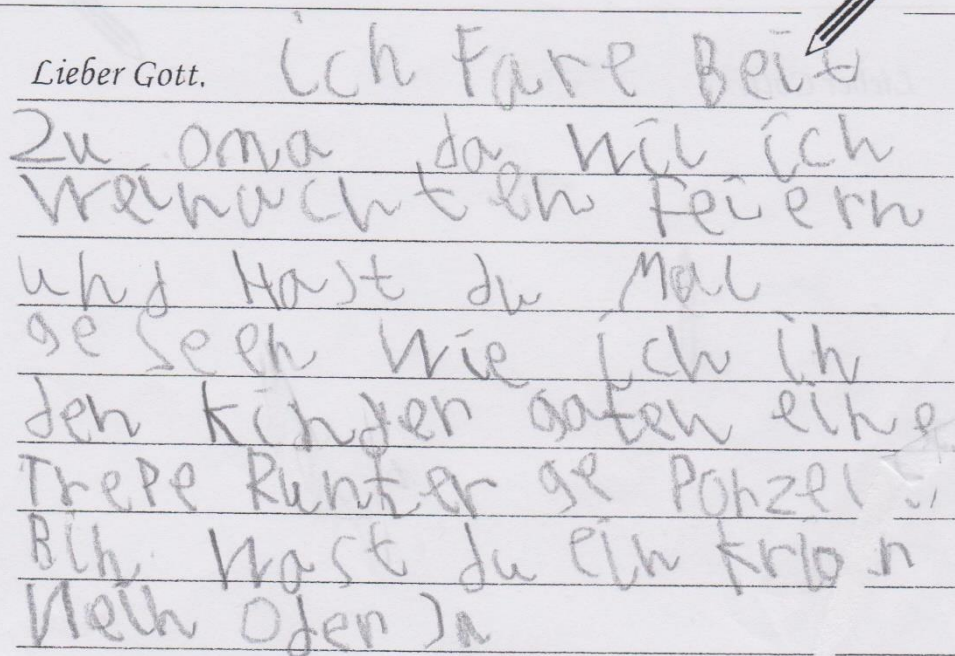 Lieber Gott. ich Fare Beit
Zu oma da wil ich
weinachten Feiern
und Hast du Mal
ge Seen Wie ich in
den kinder gaten eine
Trepe Runter ge Ponzel
Bin Hast du ein
Nein Oder Ja